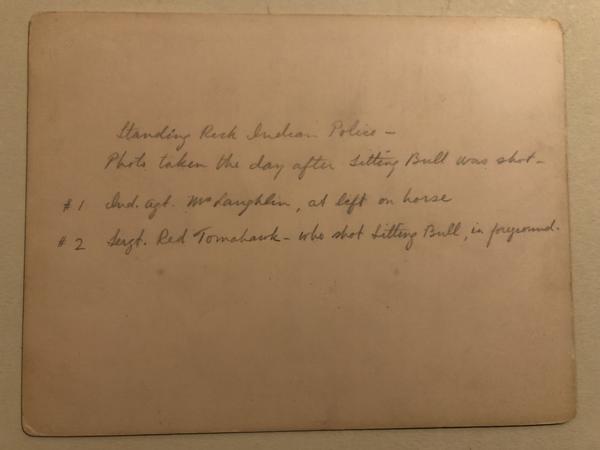 Standing Rock Indian Police –
Photo taken the day after Sitting Bull was shot –
#1 Ind. Agt. McLaughlin, at left on horse
#2 Sergt. Red Tomahawk – who shot Sitting Bull, in foreground.